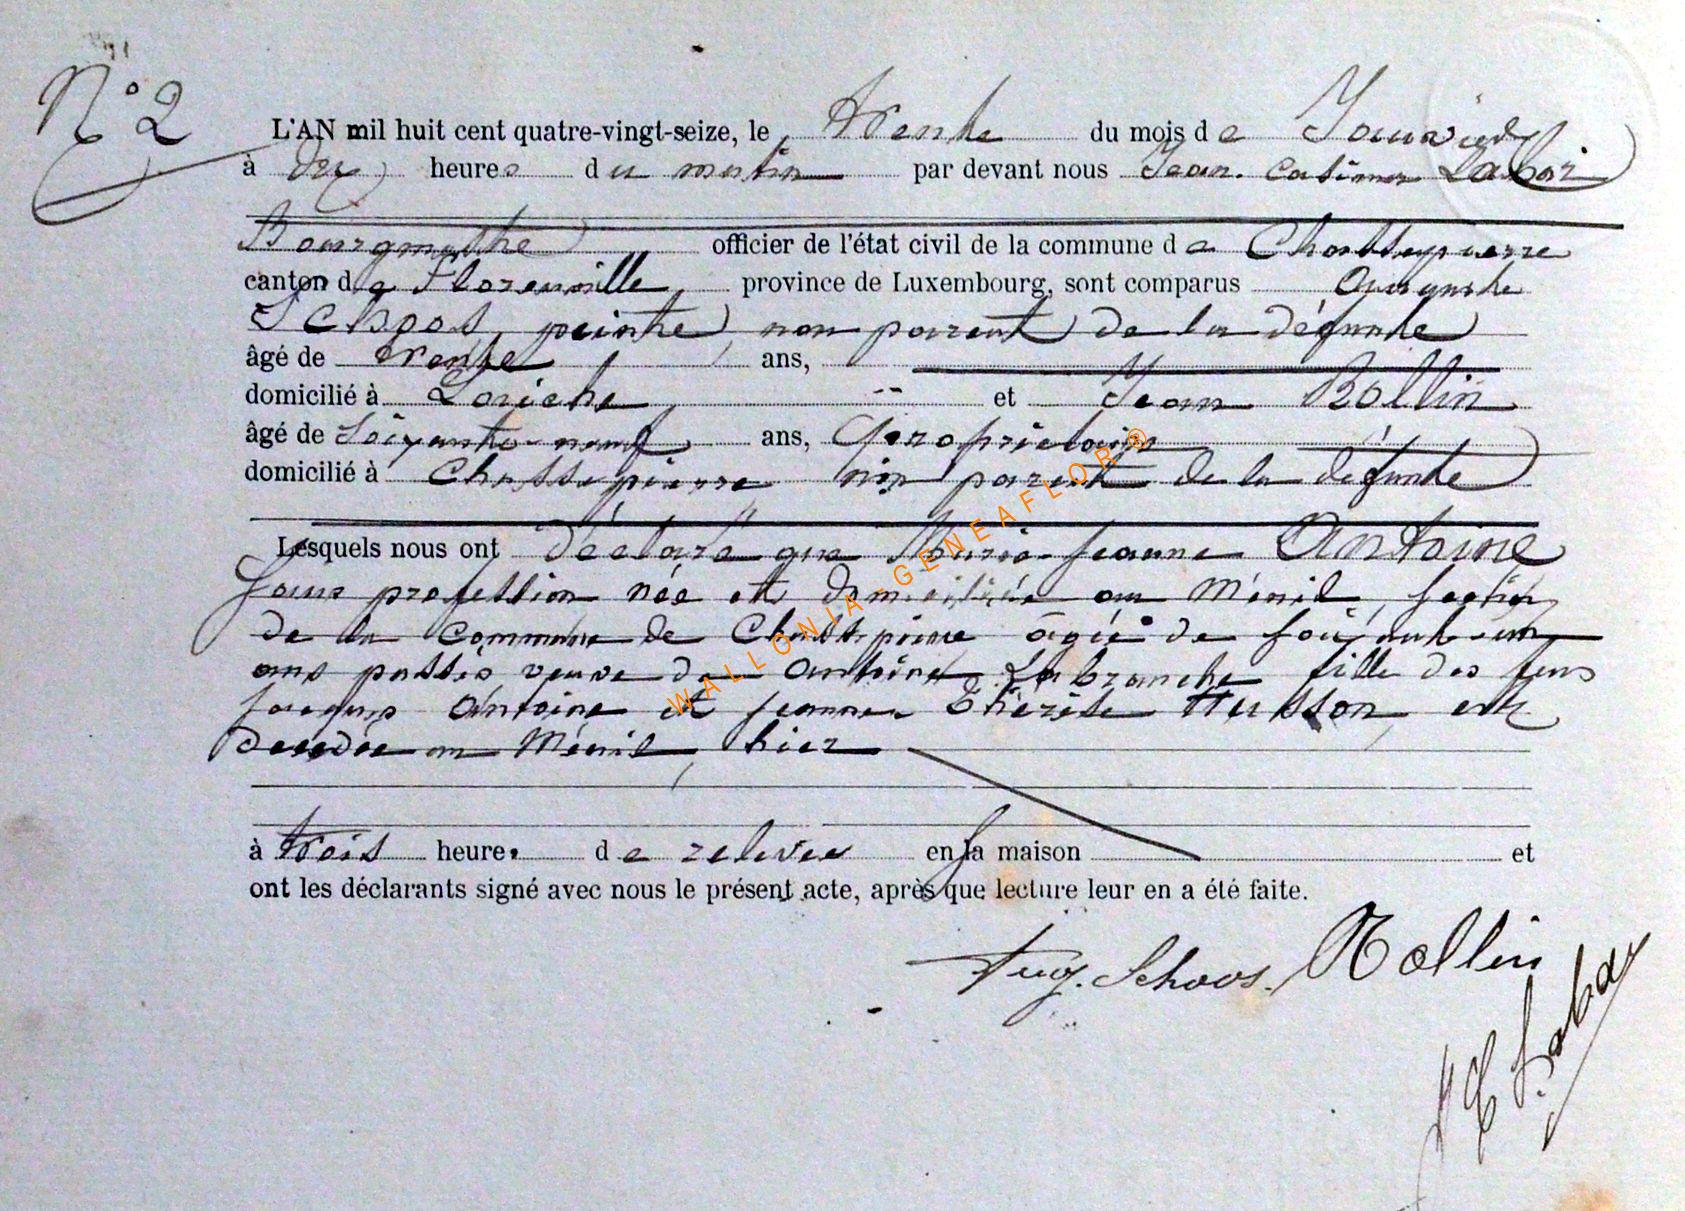 N° 2
L'AN mil huit cent quatre-vingt-seize, le trente du mois de Janvier
à dix heures du matin par devant nous Jean Casimir Labar
Bourgmestre officier de l'état civil de la commune de Chassepierre
canton de Florenville province de Luxembourg, sont comparus Auguste
Schoos, peintre, non parent de la défunte
âgé de trente ans,
domicilié à Laiche et Jean Rollin
âgé de Soixante-neuf ans, propriétaire
domicilié à Chassepierre non parent de la défunte
Lesquels nous ont déclaré que Marie-Jeanne Antoine
sans profession née et domiciliée au Ménil, section
de la commune de Chassepierre âgée de soixante-un
ans passés veuve de Antoine Labranche fille des feus
Jacques Antoine et Jeanne Thérèse Husson, est
décédée au Ménil, hier
à trois heures de relevée en sa maison et
ont les déclarants signé avec nous le présent acte, après que lecture leur en a été faite.
Aug. Schoos. Rollin
JC Labar
WALLONIA - GENEAFLOR®